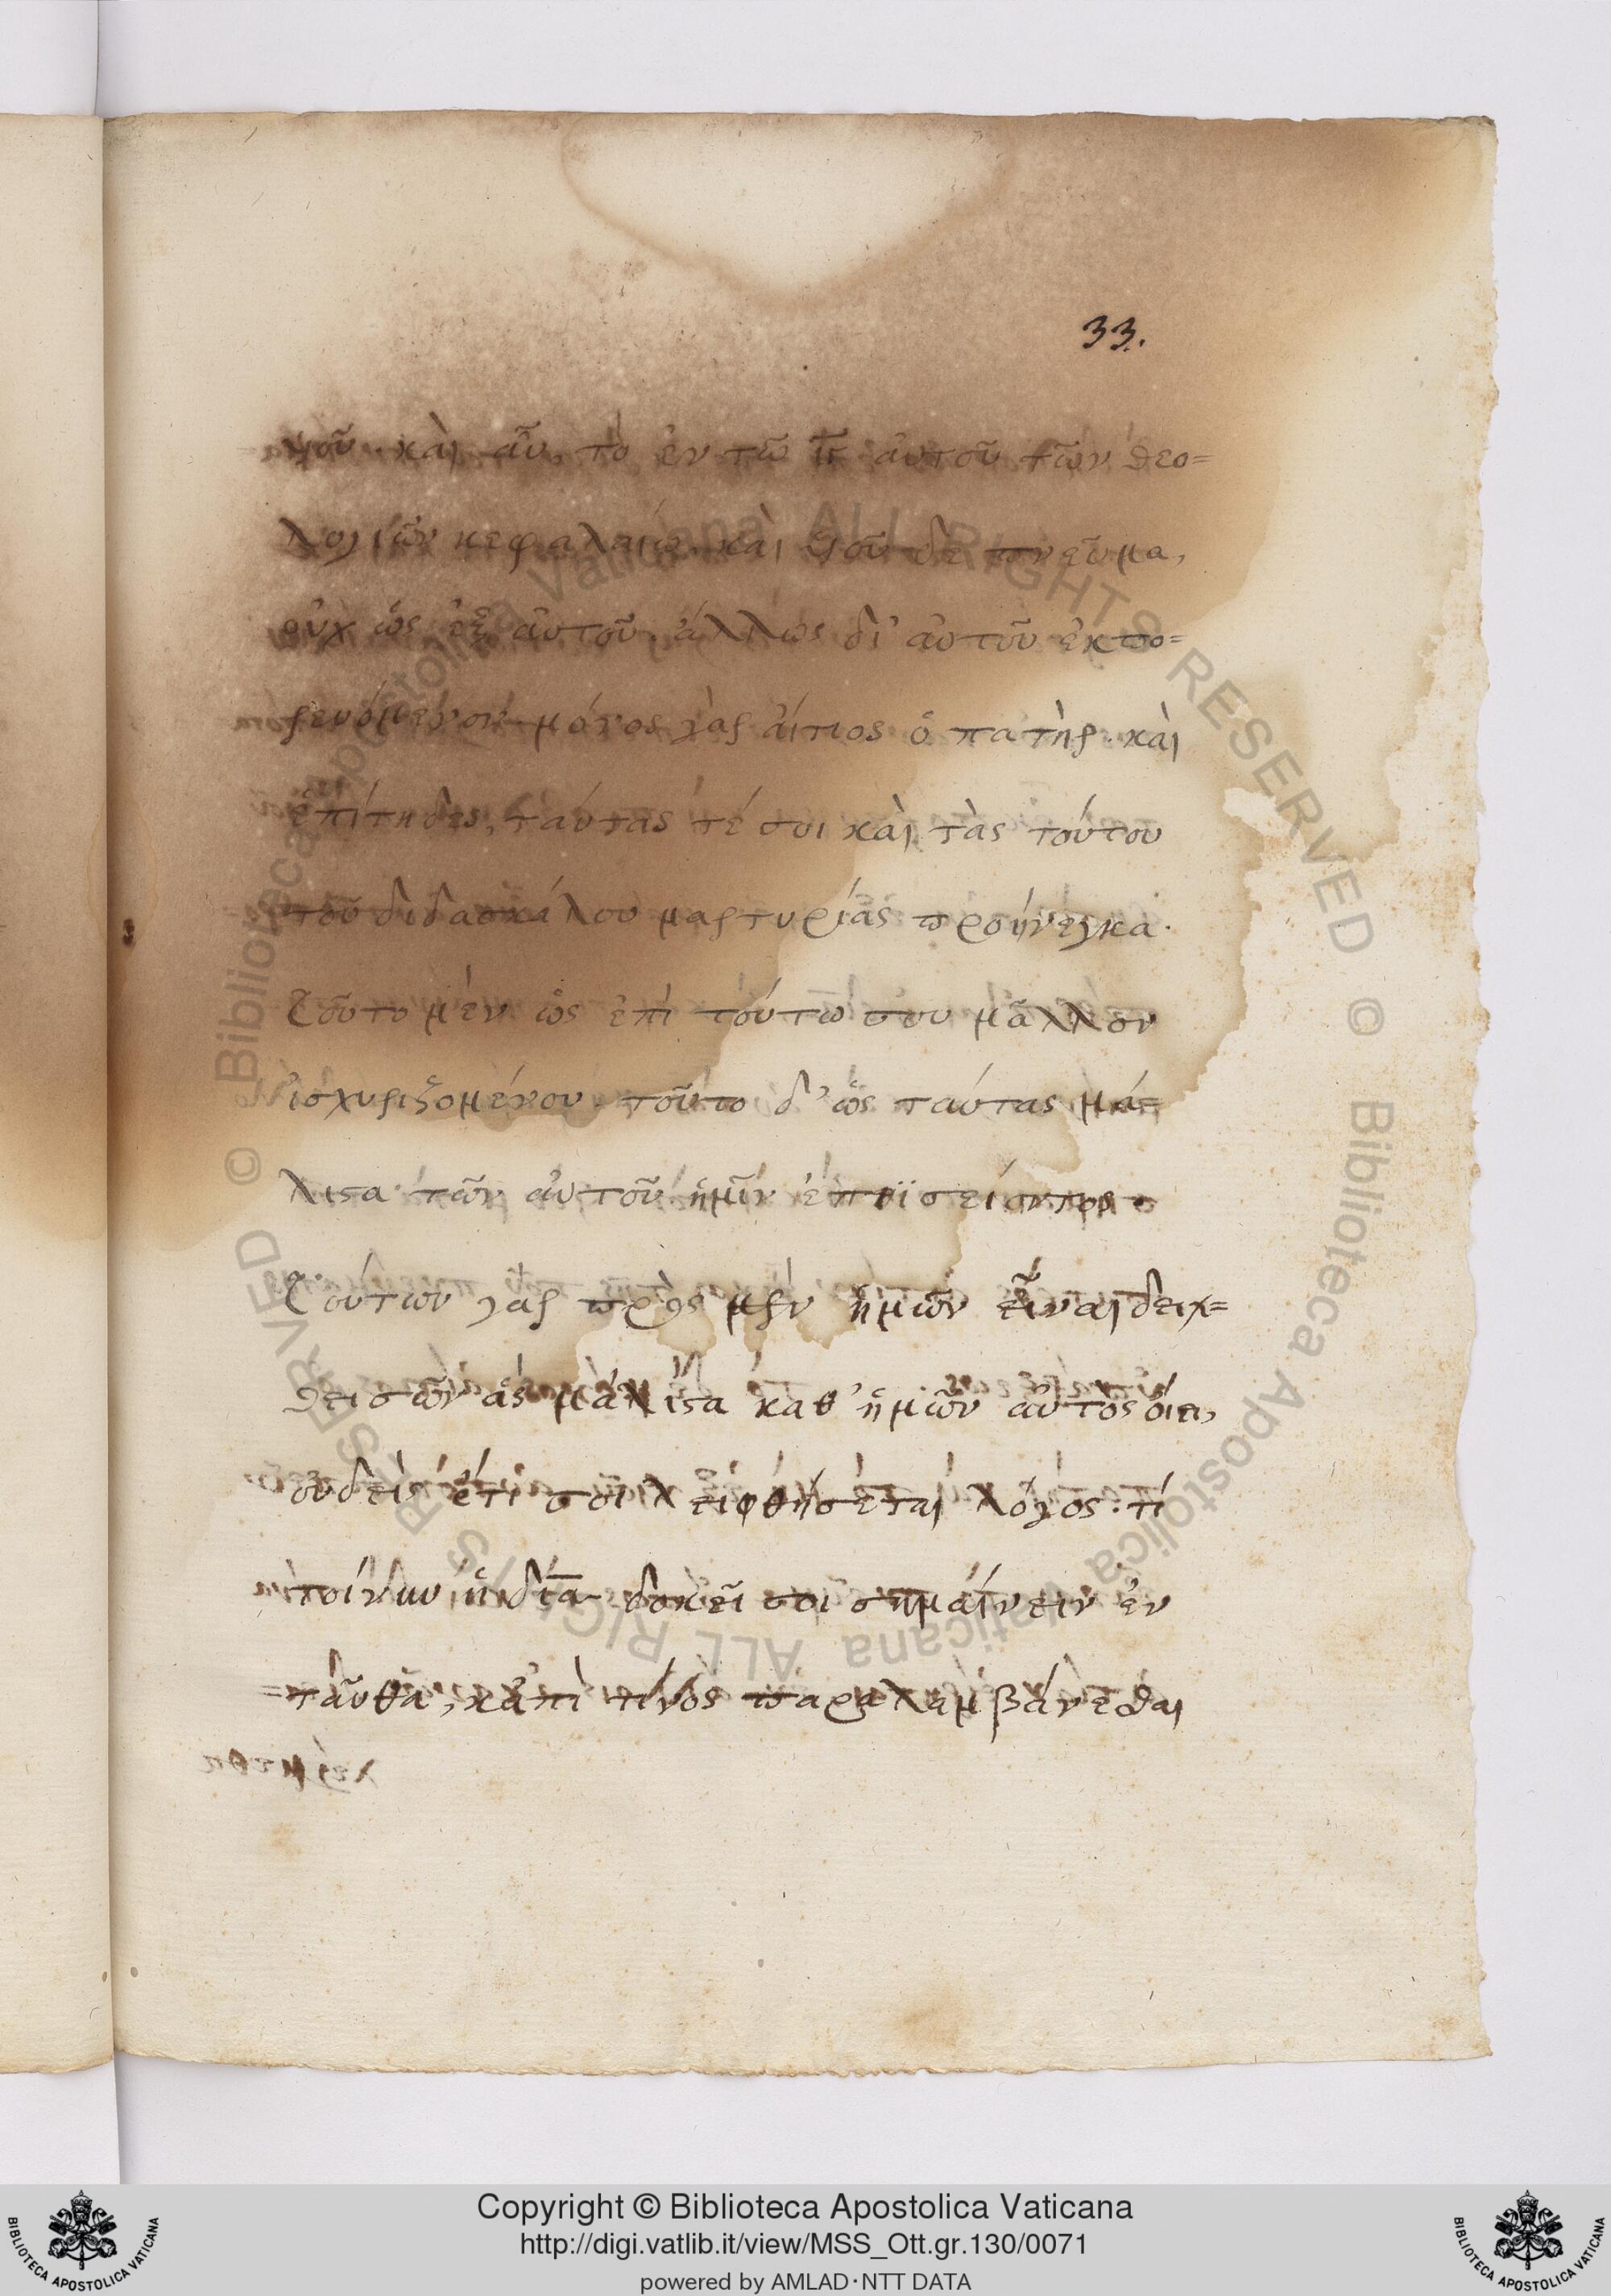 33.
καὶ αὖ, τὸ ἐν τῷ ιγ αὐτοῦ τῶν θεο=
λογιῶν κεφαλαίω. καὶ υἱοῦ δὲ πνεῦμα,
οὐχ ὡς ἐξ αὐτοῦ. ἀλλ' ὡς δι' αὐτοῦ ἐκπο=
ρευόμενον· μόνος γὰρ αἴτιος ὁ πατήρ. καὶ
ἐπίτηδες, ταύτας τέ σοι καὶ τὰς τούτου
τοῦ διδασκάλου μαρτυρίας προήνεγκα.
Τοῦτο μὲν ὡς ἐπὶ τούτω σου μᾶλλον
ἰσχυριζομένου. τοῦτο δ' ὡς ταύτας μά=
λιστα τῶν αὐτοῦ ἡμῖν
Τούτων γὰρ πρὸς μὲν ἡμῶν εἶναι δειχ=
θεισῶν ἃς μάλιστα καθ' ἡμῶν αὐτὸς οἴει,
οὐδεὶς ἔτι σοι λειφθήσεται λόγος. τί
τοίνυν ἡ διὰ δοκεῖ σοι σημαίνειν ἐν
=ταῦθα, κἀπὶ τίνος παραλαμβάνεσθαι
Copyright © Biblioteca Apostolica Vaticana
http://digi.vatlib.it/view/MSS_Ott.gr.130/0071
powered by AMLAD·NTT DATA
BIBLIOTECA APOSTOLICA VATICANA
BIBLIOTECA APOSTOLICA VATICANA
© Biblioteca Apostolica Vaticana ALL RIGHTS RESERVED
© Biblioteca Apostolica Vaticana ALL RIGHTS RESERVED